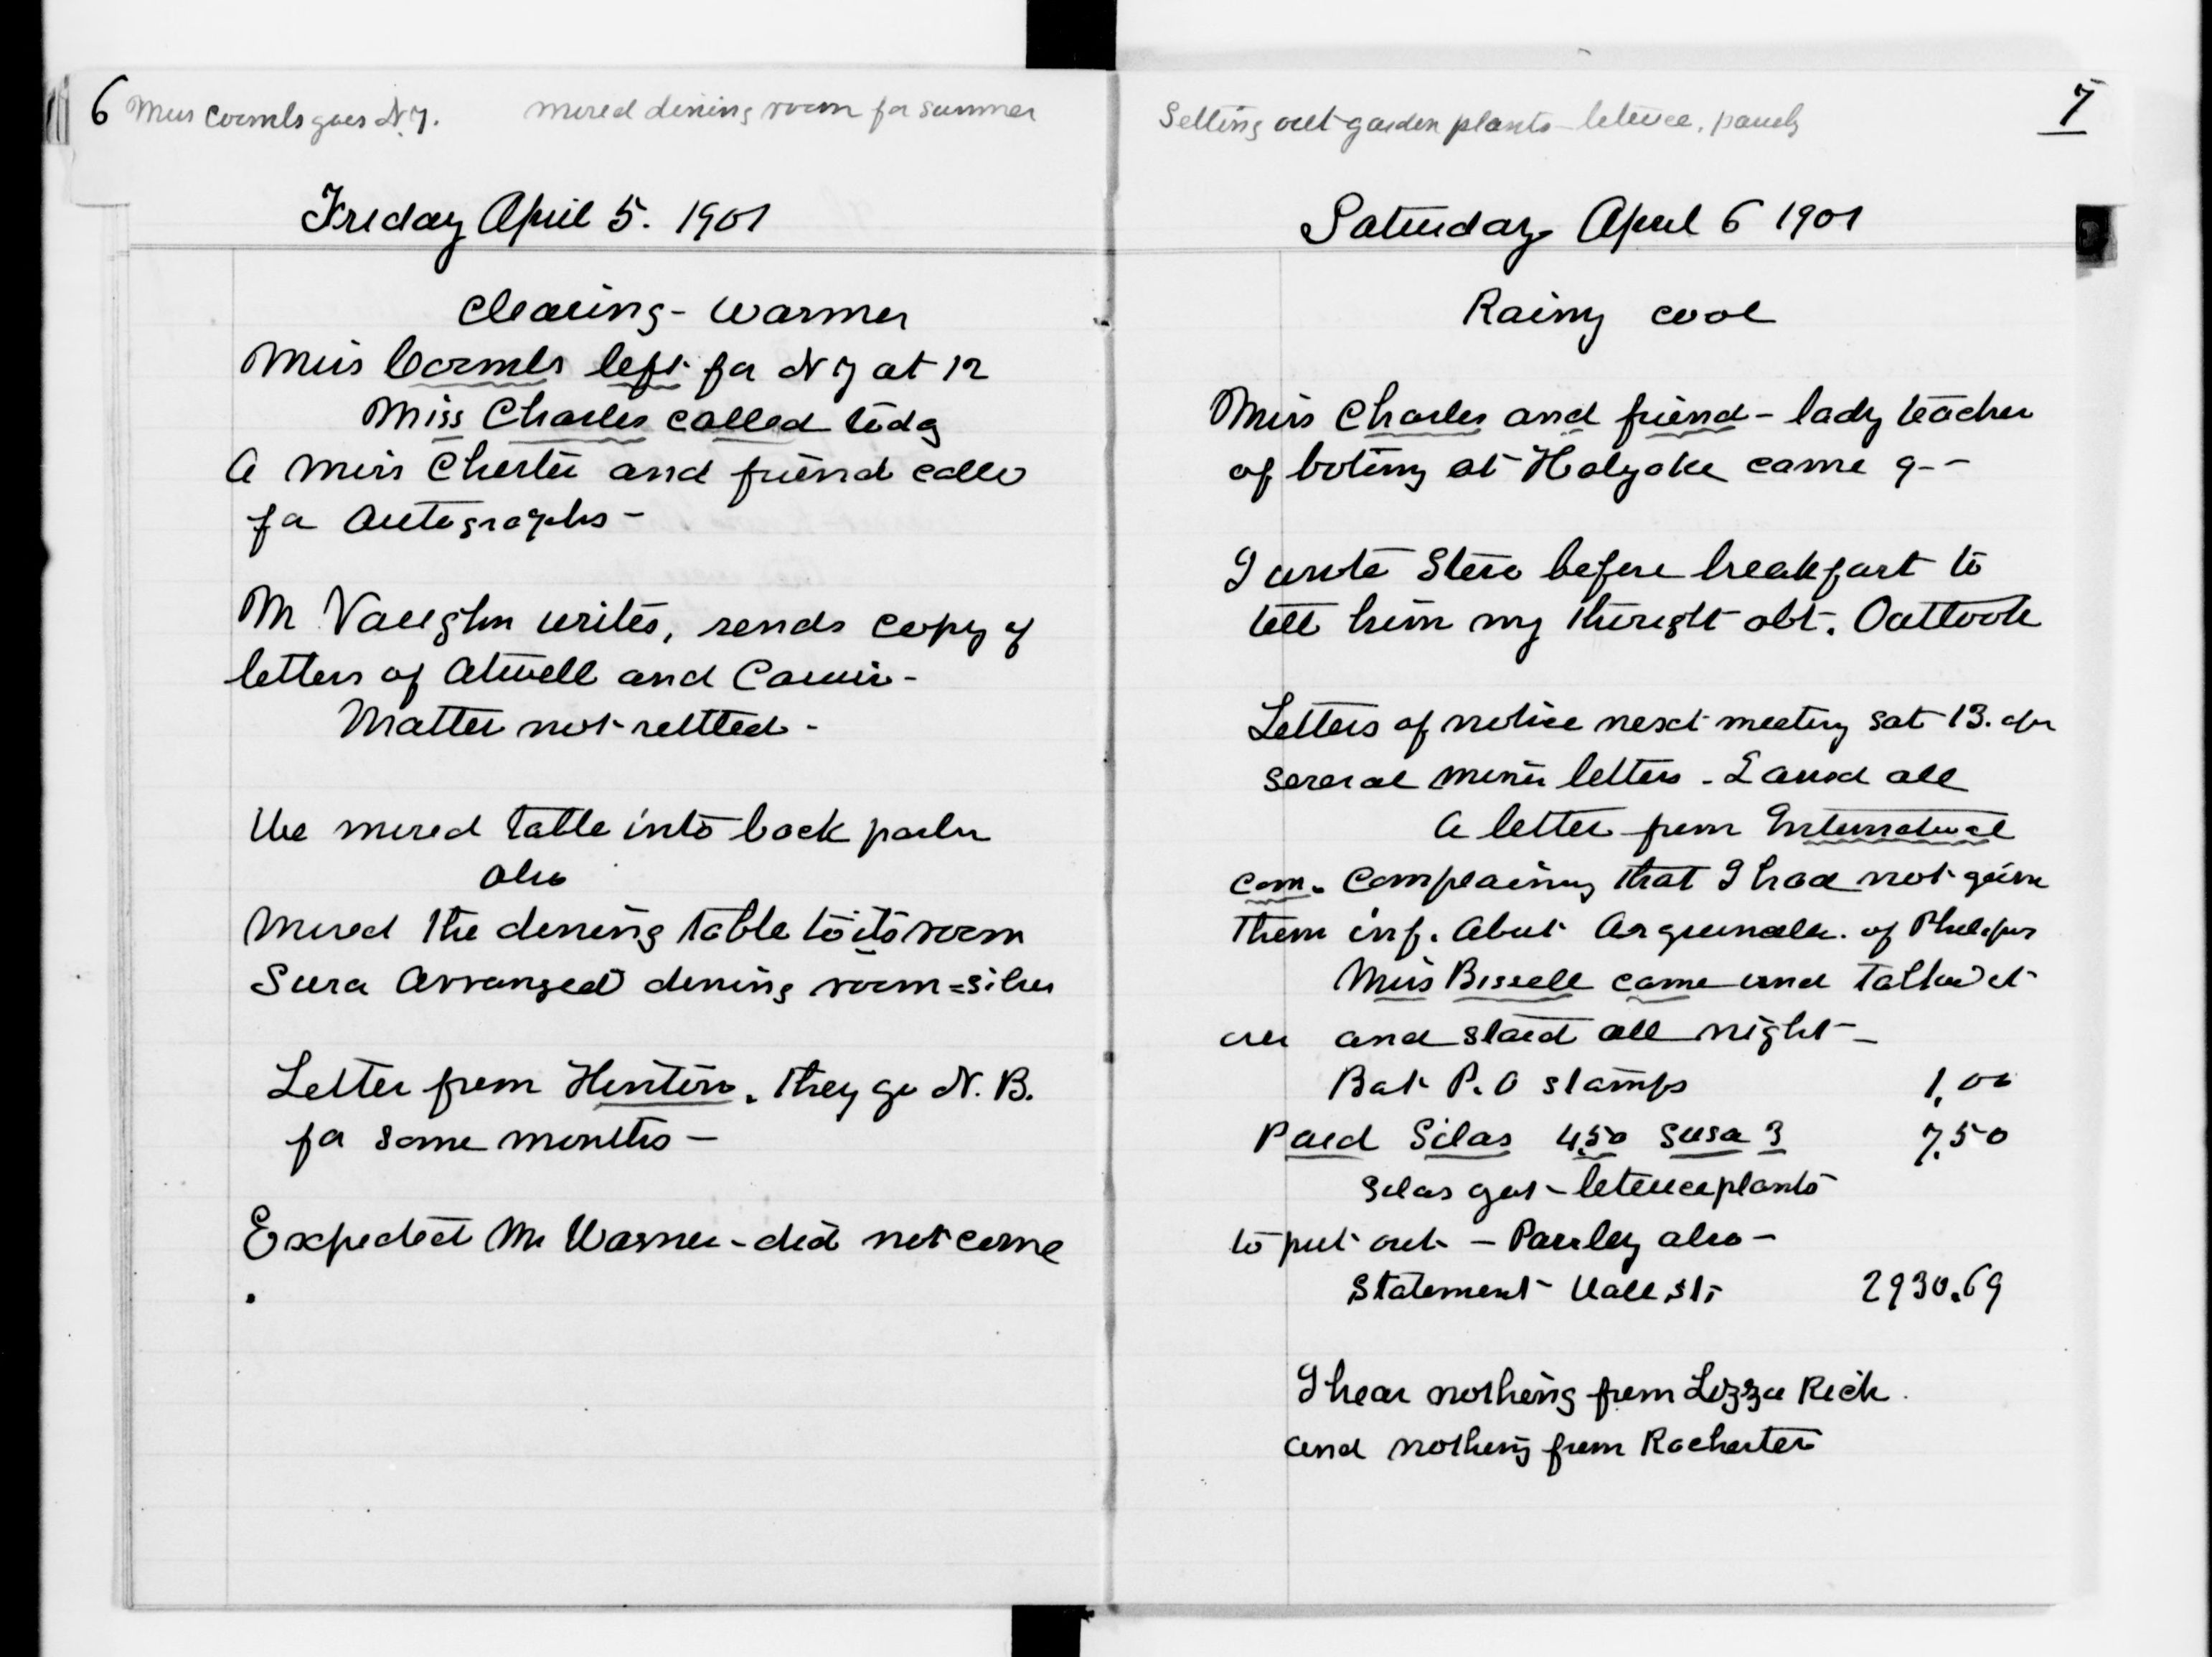 6 Miss Coombs goes N.Y. moved dining room for summer
Friday April 5. 1901
Clearing - Warmer
Miss Coombs left for N Y at 12
Miss Charles called tody
A Miss Chester and friend calld
for Autographs -
Mr Vaughn writes, sends copy of
letters of Atwell and
Matter not settled -
We moved table into back parlor
also
Moved the dining table to its room
Sura Arranged dining room = silver
Letter from Hinton. They go N. B.
for some months -
Expected Mr Warner - did not come
Setting out garden plants - letuce, parsly
7
Saturday April 6 1901
Rainy cool
Miss Charles and friend - lady teacher
of botiny at Holyoke came
I wrote Steve before breakfast to
tell him my thought abt. Outlook
Letters of notice next meeting Sat 13. apr
Several minor letters - I ansd all
A letter from International
com. Complaining that I had not given
them inf. About of Philipas
Miss Bissell came and talked it
over and staid all night -
Bot P. O stamps 1.00
Paid Silas 4.50 Susa 3 7.50
Silas got - letuce plants
to put out - Parsley also -
Statement Wall St. 2930.69
I hear nothing from Lizzie Rich
and nothing from Rochester